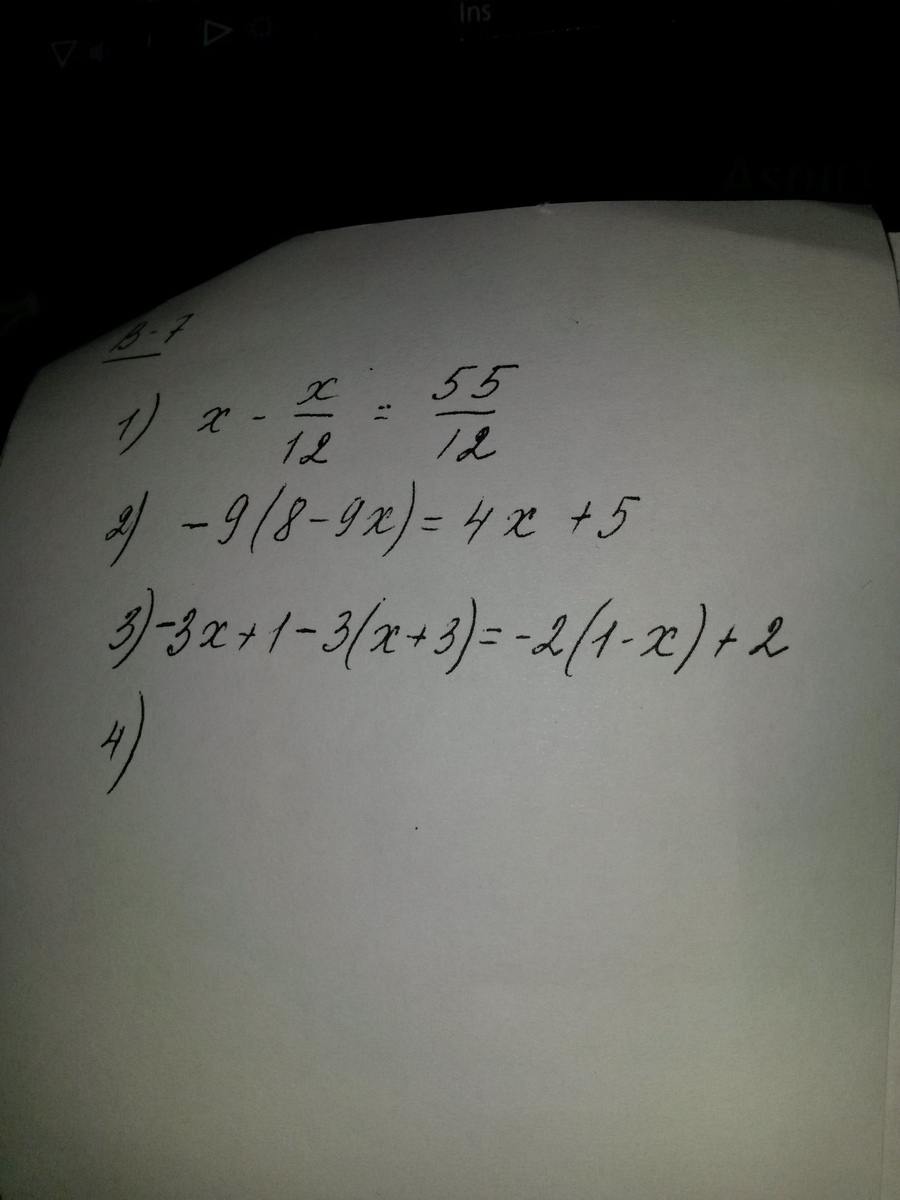 Ins
В-7
1) x - x/12 = 55/12
2) -9(8-9x)=4x+5
3) -3x+1-3(x+3)=-2(1-x)+2
4)